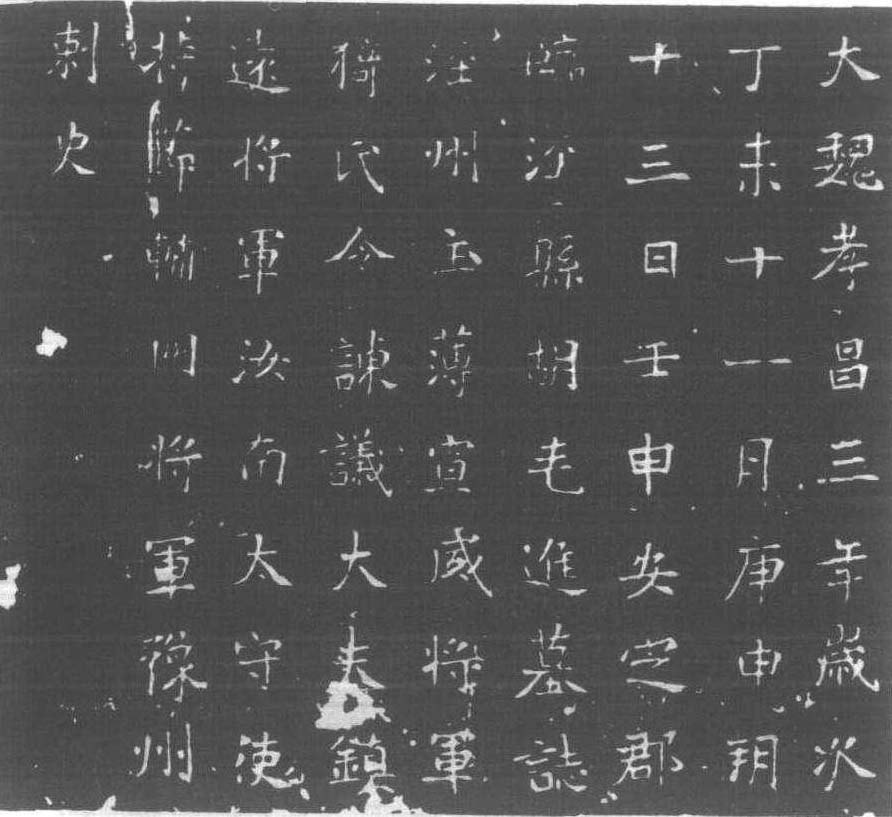 大魏孝昌三年歲次
丁未十一月庚申朔
十三日壬申安定郡
臨涇縣胡屯進墓誌
涇州主薄宣威將軍
猗氏令諫議大夫鎮
遠將軍汝南太守使
持節輔國將軍豫州
刺史